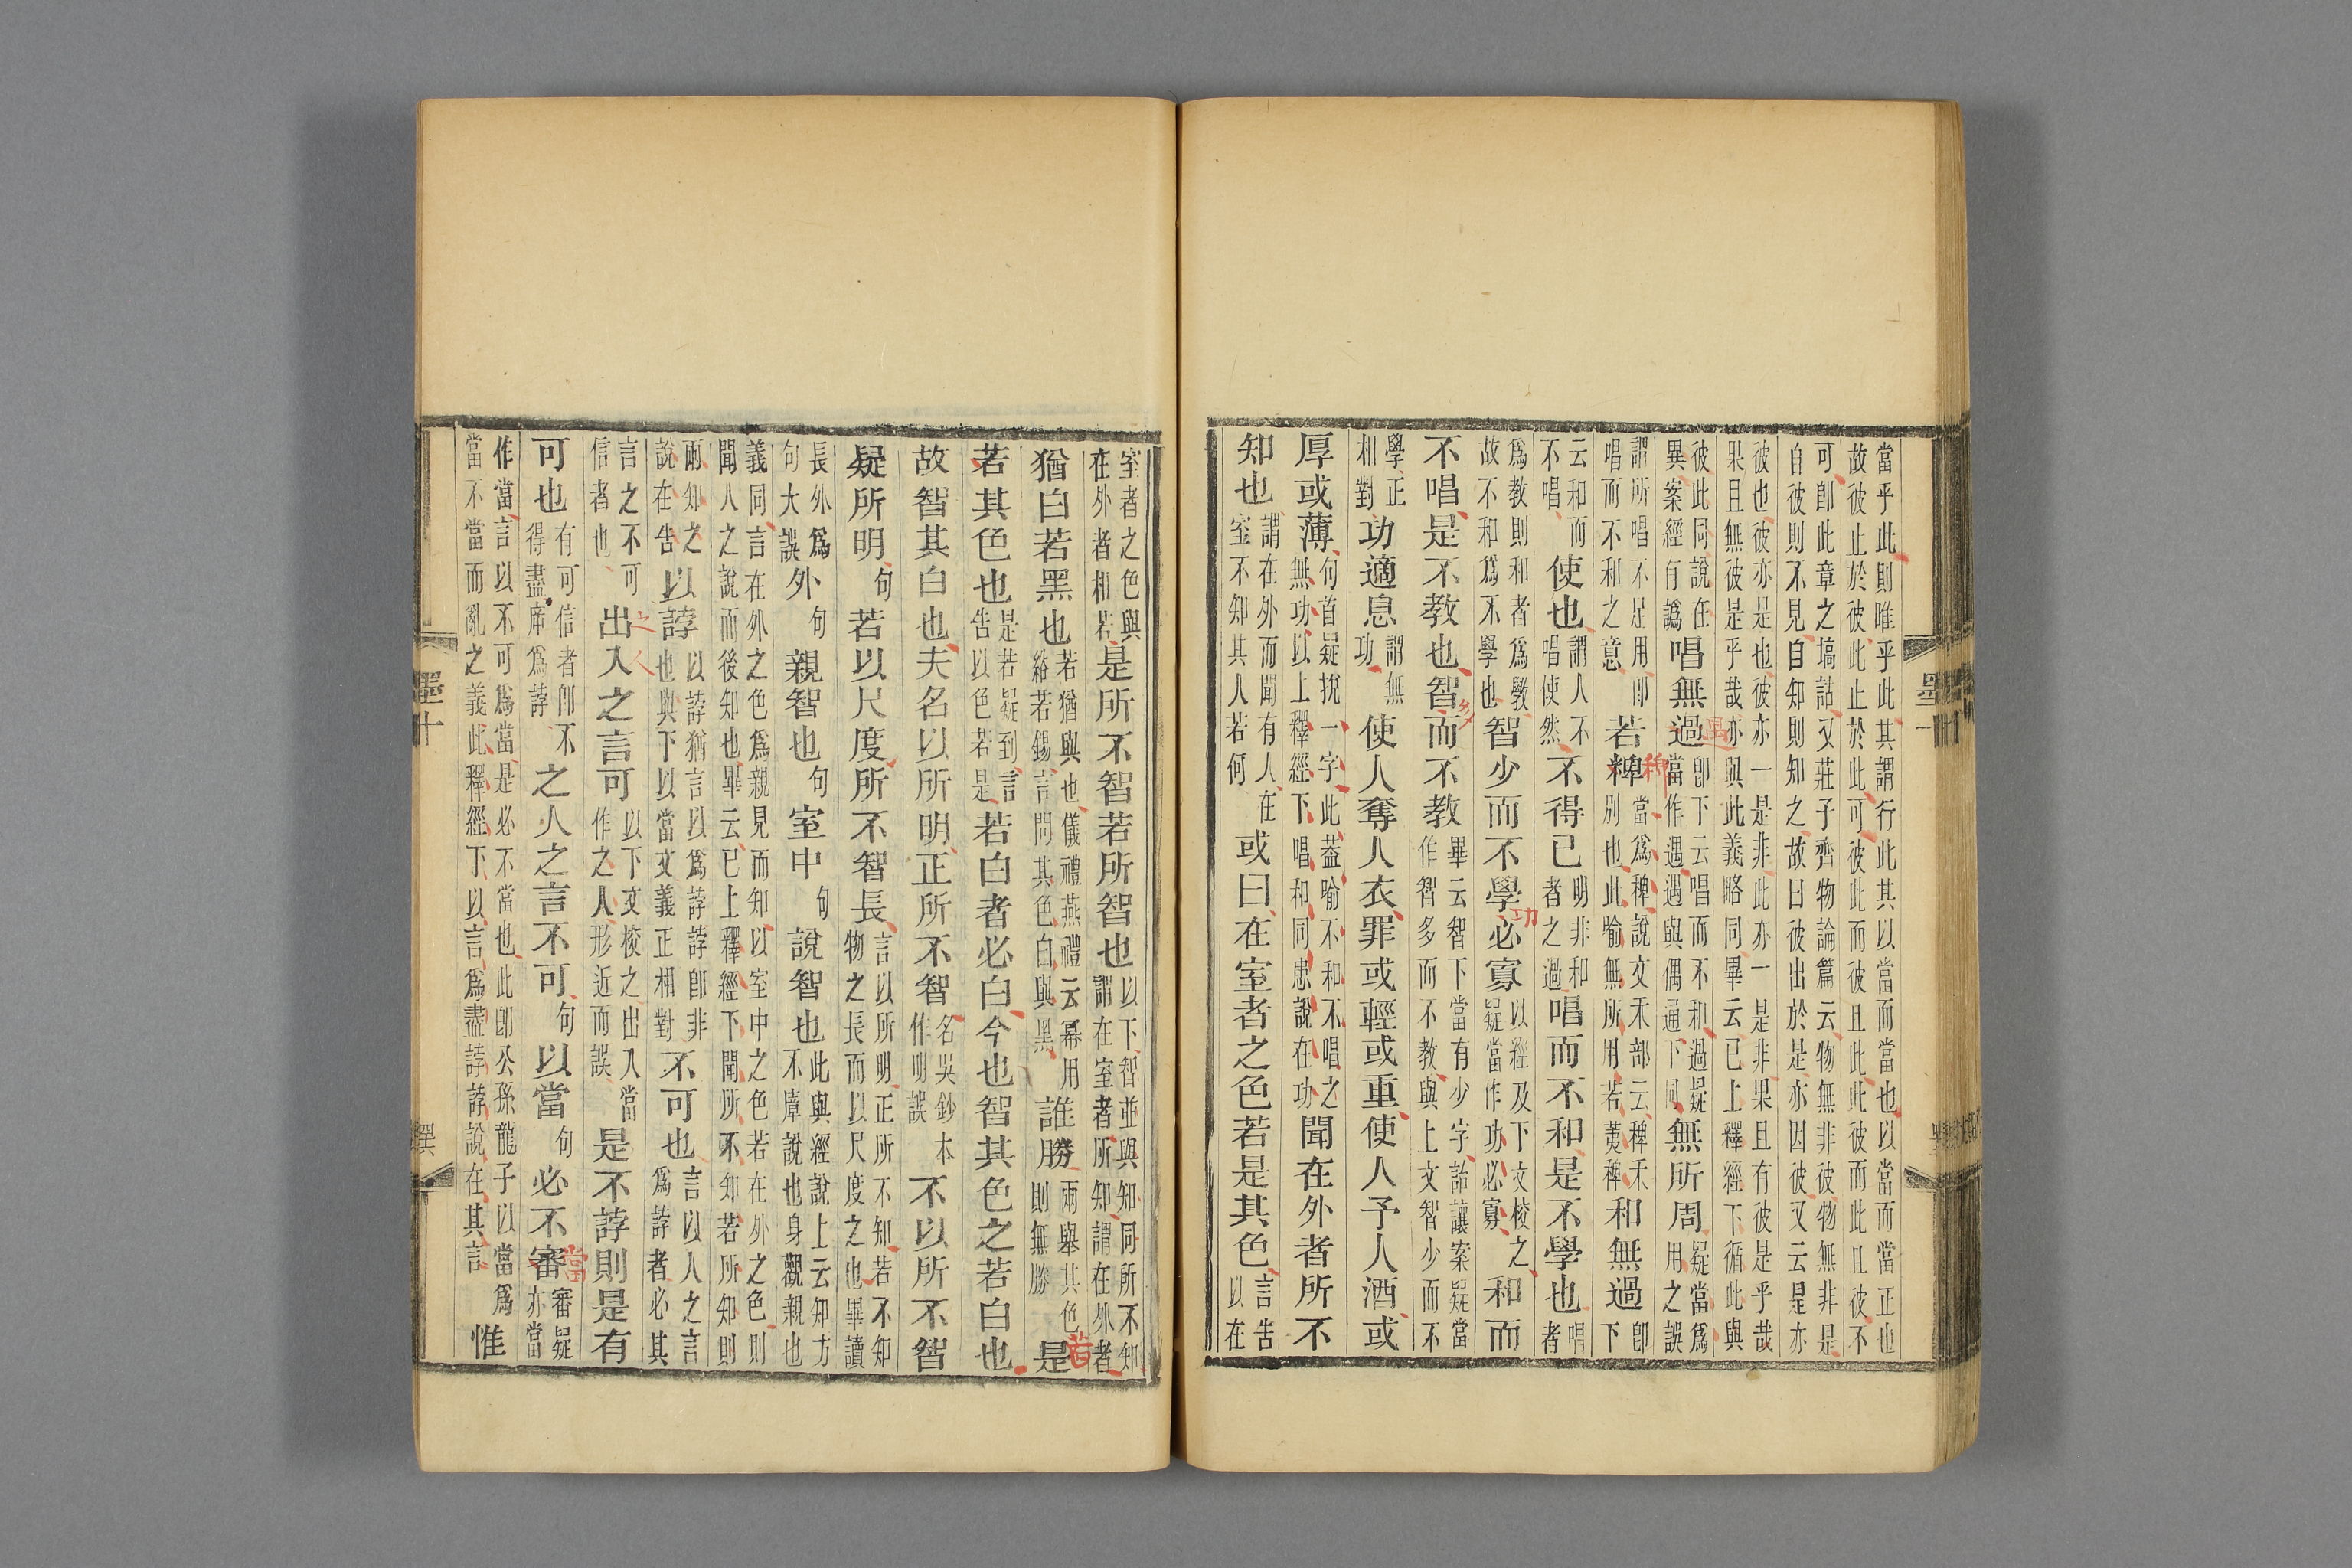 當乎此則唯乎此其謂行此其以當而當也以當而當正也
故彼止於彼此止於此可彼此而彼且此此彼而此且彼不
可卽此章之塙詁又莊子齊物論篇云物無非彼物無非是
自彼則不見自知則知之故曰彼出於是亦因彼又云是亦
彼也彼亦是也彼亦一是非此亦一是非果且有彼是乎哉
果且無彼是乎哉亦與此義略同畢云已上釋經下循此與
彼此同說在
異案經有譌唱無過卽下云唱而不和過疑
當作遇遇與偶通下同無所周疑當爲
用之誤
謂所唱不足用卽
唱而不和之意若粺當爲稗說文禾部云稗禾
別也此喻無所用若荑稗和無過卽
下
云和而
不唱使也謂人不
唱使然不得已明非和
者之過唱而不和是不學也唱
者
爲教則和者爲斅
故不和爲不學也智少而不學必寡以經及下文校之
疑當作功必寡和而
不唱是不教也智而不教畢云智下當有少字詒讓案疑當
作智多而不教與上文智少而不
學正
相對功適息謂無
功使人奪人衣罪或輕或重使人予人酒或
厚或薄句首疑捝一字此葢喻不和不唱之
無功以上釋經下唱和同患說在功聞在外者所不
知也謂在外而聞有人在
室不知其人若何或曰在室者之色若是其色言告
以在
室者之色與
在外者相若是所不智若所智也以下智並與知同所不知
謂在室者所知謂在外者
猶白若黑也若猶與也儀禮燕禮云冪用
綌若錫言問其色白與黑誰勝兩舉其色
則無勝是
若其色也是若若疑到言
告以色若是若白者必白今也智其色之若白也
故智其白也夫名以所明正所不智名吳鈔本
作明誤不以所不智
疑所明句若以尺度所不智長言以所明正所不知若不知
物之長而以尺度之也畢讀
長外爲
句大誤外句親智也句室中句說智也此與經說上云知方
不㢓說也身觀親也
義同言在外之色爲親見而知以室中之色若在外之色則
聞人之說而後知也畢云已上釋經下聞所不知若所知則
兩知之
說在告以誖以誖猶言以爲誖誖卽非
也與下以當文義正相對不可也言以人之言
爲誖者必其
言之不可
信者也出入之言可以下文校之出入當
作之人形近而誤是不誖則是有
可也有可信者卽不
得盡庳爲誖之人之言不可句以當句必不審審疑
亦當
作當言以不可爲當是必不當也此卽公孫龍子以當爲
當不當而亂之義此釋經下以言爲盡誖誖說在其言惟